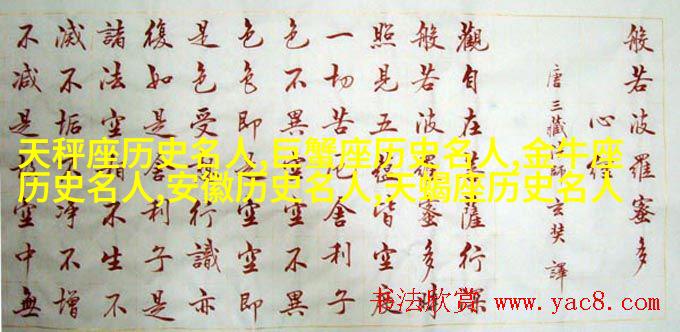 般若波羅蜜多
心經
唐三藏法師玄奘譯
觀自在菩薩行深
般若波羅蜜多時
照見五蘊皆空度
一切苦厄舍利子
色不異空空不異
色色即是空空即
是色受想行識亦
復如是舍利子是
諸法空相不生不
滅不垢不淨不增
不減是故空中無
天秤座历史名人,巨蟹座历史名人,金牛座
历史名人,安徽历史名人,天蝎座历史名人
书法欣赏 www.yac8.com